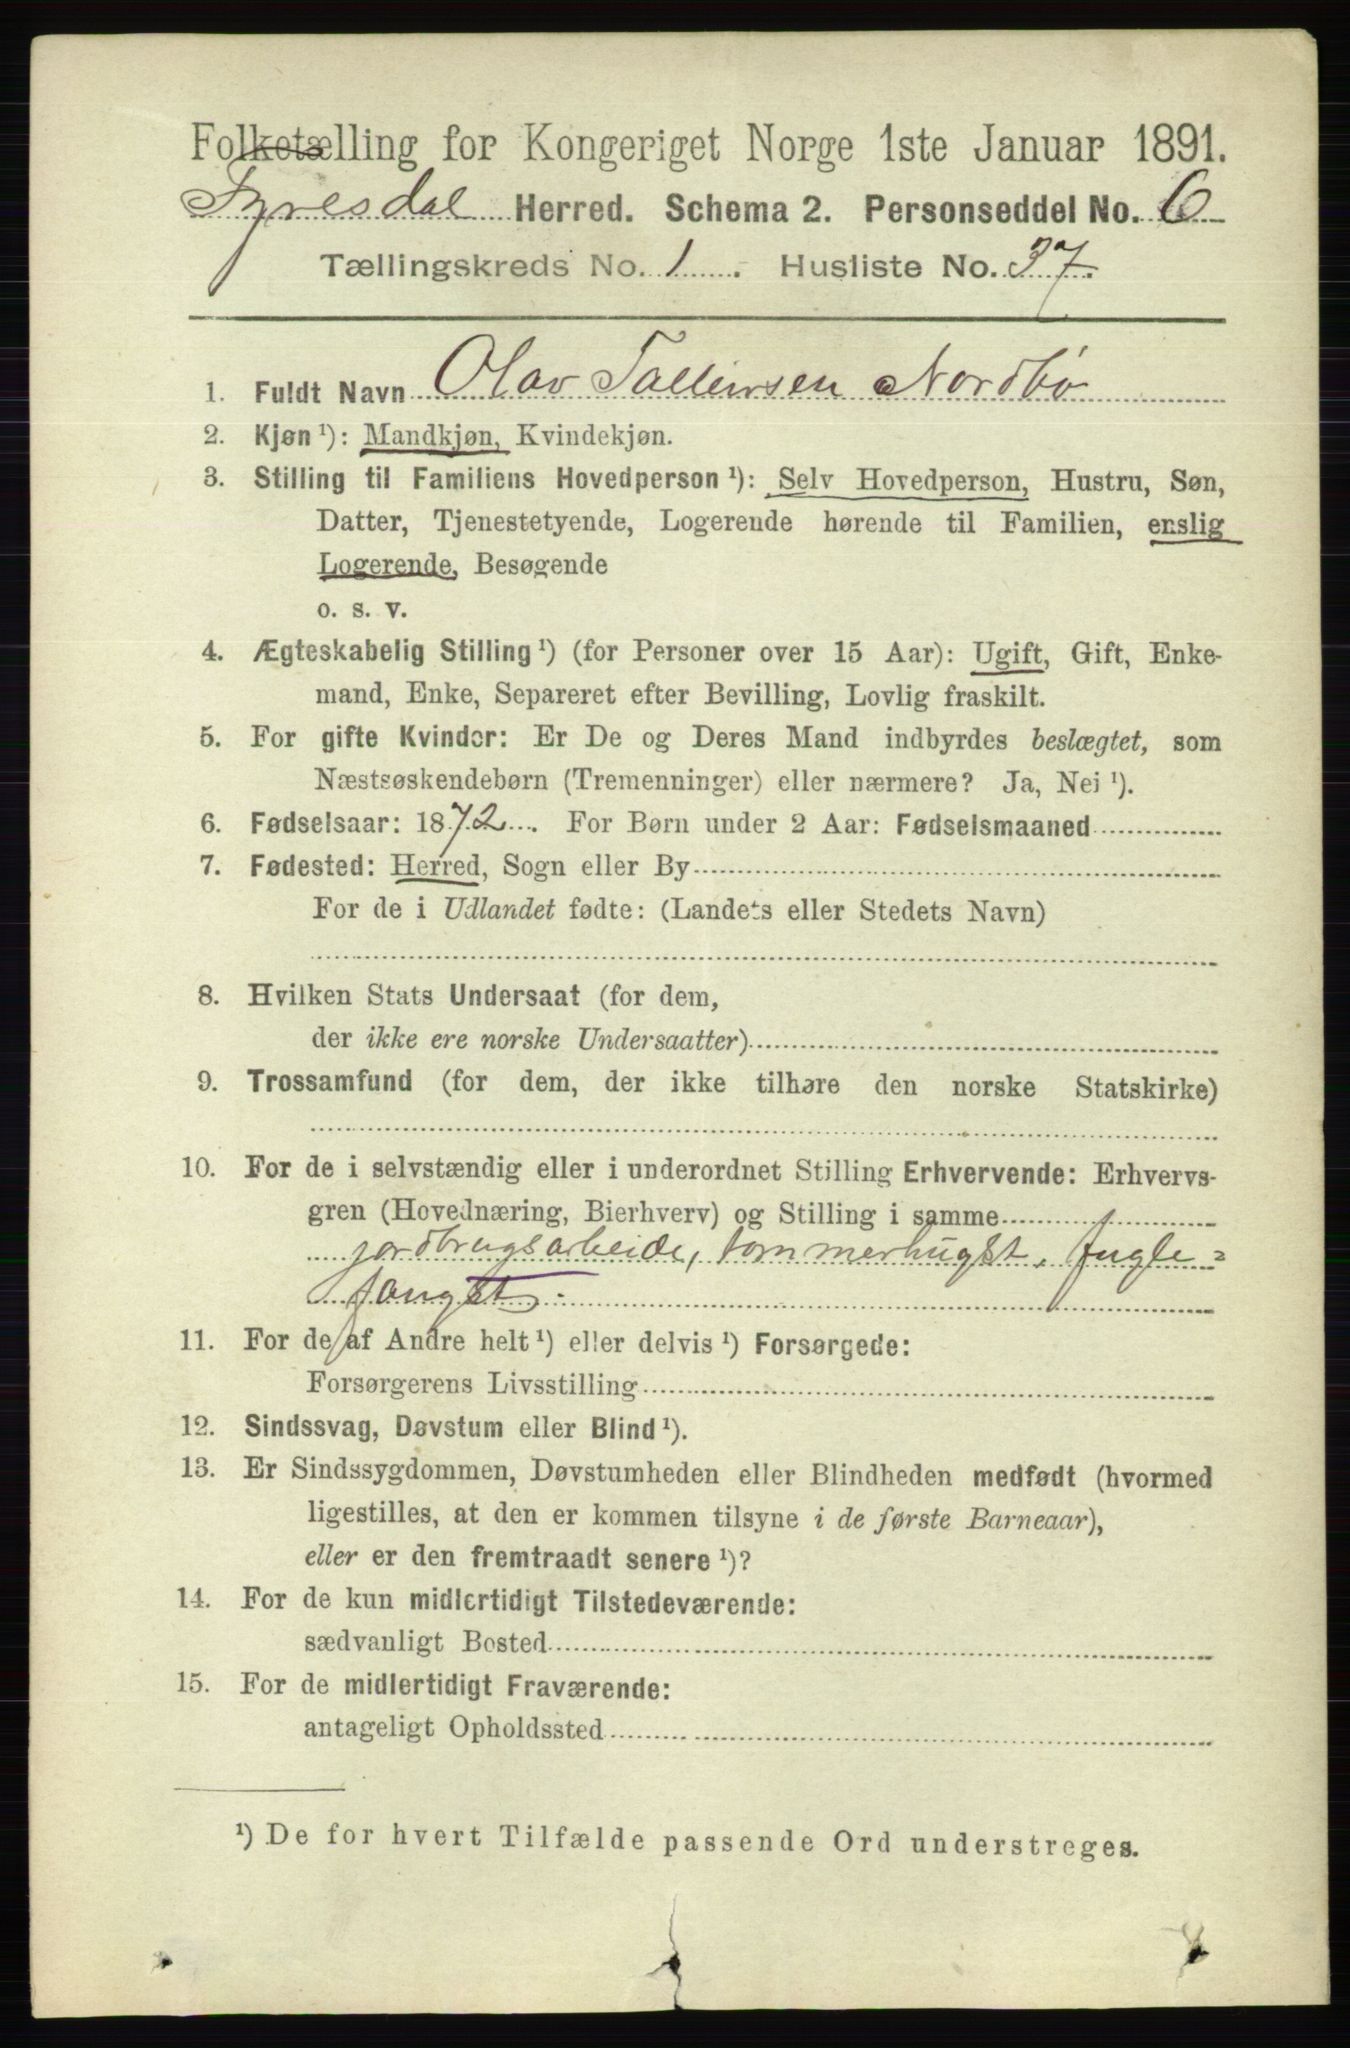 Folketælling for Kongeriget Norge 1ste Januar 1891.
Fyresdal Herred. Schema 2. Personseddel No. 6
Tællingskreds No. 1. Husliste No. 37.
1. Fuldt Navn Olav Talleivsen Nordbø
2. Kjøn ¹): Mandkjøn, Kvindekjøn.
3. Stilling til Familiens Hovedperson ¹): Selv Hovedperson, Hustru, Søn,
Datter, Tjenestetyende, Logerende hørende til Familien, enslig
Logerende, Besøgende
o. s. v.
4. Ægteskabelig Stilling ¹) (for Personer over 15 Aar): Ugift, Gift, Enke-
mand, Enke, Separeret efter Bevilling, Lovlig fraskilt.
5. For gifte Kvinder: Er De og Deres Mand indbyrdes beslægtet, som
Næstsøskendebørn (Tremenninger) eller nærmere? Ja, Nei ¹).
6. Fødselsaar: 1872. For Børn under 2 Aar: Fødselsmaaned
7. Fødested: Herred, Sogn eller By
For de i Udlandet fødte: (Landets eller Stedets Navn)
8. Hvilken Stats Undersaat (for dem,
der ikke ere norske Undersaatter)
9. Trossamfund (for dem, der ikke tilhøre den norske Statskirke)
10. For de i selvstændig eller i underordnet Stilling Erhvervende: Erhvervs-
gren (Hovednæring, Bierhverv) og Stilling i samme
jordbrugsarbeide, tommerhugst, fugle=
fangst.
11. For de af Andre helt ¹) eller delvis ¹) Forsørgede:
Forsørgerens Livsstilling
12. Sindssvag, Døvstum eller Blind ¹).
13. Er Sindssygdommen, Døvstumheden eller Blindheden medfødt (hvormed
ligestilles, at den er kommen tilsyne i de første Barneaar),
eller er den fremtraadt senere ¹)?
14. For de kun midlertidigt Tilstedeværende:
sædvanligt Bosted
15. For de midlertidigt Fraværende:
antageligt Opholdssted
¹) De for hvert Tilfælde passende Ord understreges.